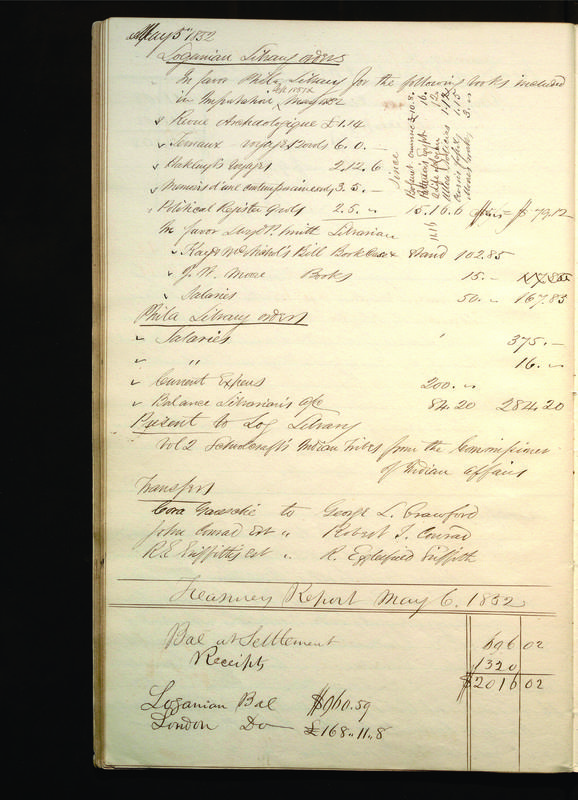 May 5th 1852
Loganian Library orders
In favor Phila Library for the following books included
in Importation May 1852
Revue Archaeologique £1.14
Ternaux voyages 8 vols 6.0.–
Hakluyt's voyages 2.12.6
Memoirs d'une contemporaine 3.5.–
Political Register 2.5.– 15.16.6 $79.12
Since
In favor Lloyd P. Smith Librarian
Kay & McNichol's Bill Book Case & Stand 102.85
J. W. Moore Books 15.–
Salaries 50.– 167.85
Phila Library orders
Salaries 375.–
" 16.–
Current Expens 200.–
Balance Librarian's a/c 84.20 284.20
Present to Log Library
Vol 2 Schoolcraft's Indian Tribes from the Commissioner
of Indian affairs
Transfers
Cora to George L. Crawford
John Conrad Est " Robert T. Conrad
R.E. Griffith's Est " R. Egglesfield Griffith
Treasurey Report May 6. 1852
Bal at Settlement 696 02
Receipts 1320
$2016 02
Loganian Bal $960.59
London Do £168.11.8